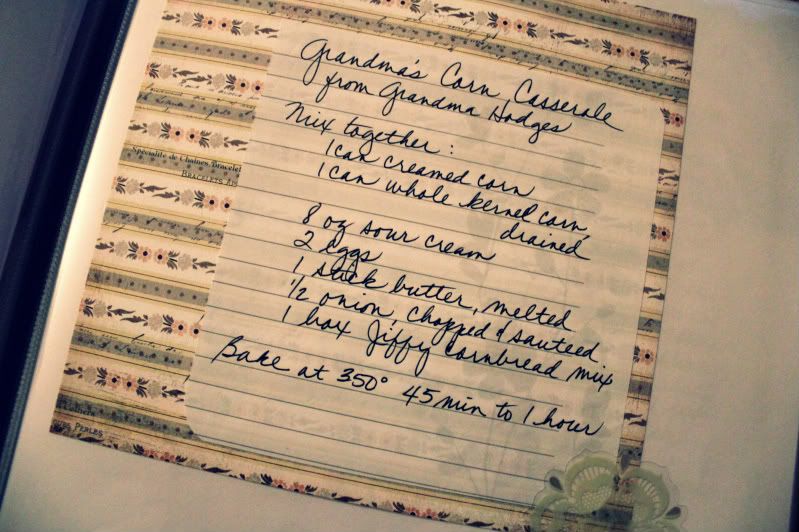 Grandma's Corn Casserole
from Grandma Hodges
Mix together:
1 can creamed corn
1 can whole kernel corn,
drained
8 oz sour cream
2 eggs
1 stick butter, melted
1/2 onion, chopped & sauteed
1 box Jiffy cornbread mix
Bake at 350° 45 min to 1 hour
Spécialité de Chaînes Bracelet
BRACELETS
PERLES